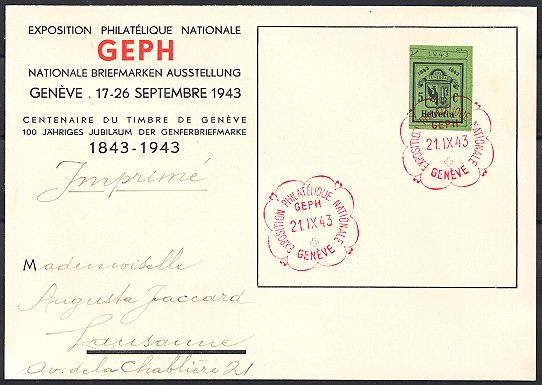 EXPOSITION PHILATÉLIQUE NATIONALE
GEPH
NATIONALE BRIEFMARKEN AUSSTELLUNG
GENÈVE . 17-26 SEPTEMBRE 1943
CENTENAIRE DU TIMBRE DE GENÈVE
100 JÄHRIGES JUBILÄUM DER GENFERBRIEFMARKE
1843-1943
Imprimé
1943
1843 1943
5 C
Helvetia
EXPOSITION PHILATÉLIQUE NATIONALE
GEPH
21.IX 43
GENÈVE
EXPOSITION PHILATÉLIQUE NATIONALE
GEPH
21.IX 43
GENÈVE
Mademoiselle
Augusta Jaccard
Lausanne
Av. de la Chablière 21